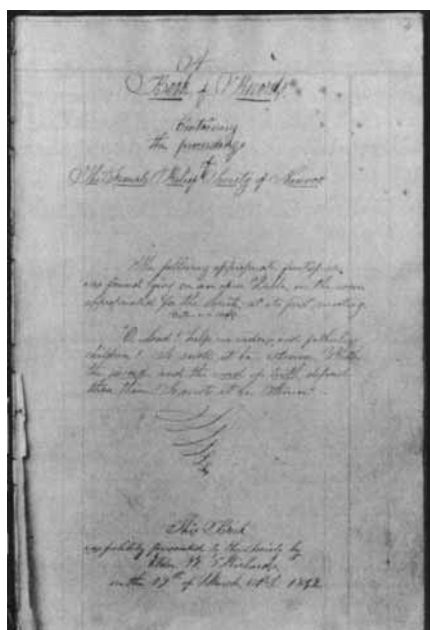 A
Book of Records
Containing
the proceedings
of
The Female Relief Society of Nauvoo
The following appropriate frontispiece
was found lying on an open Bible, in the room
appropriated for the Society at its first meeting.
"O, Lord! help our widows, and fatherless
children! So mote it be. Amen. With
the sword, and the word of truth, defend
thou them. So mote it be. Amen."
This Book
was politely presented to the Society by
Elder W. Richards;
on the 17th of March, A.D. 1842.